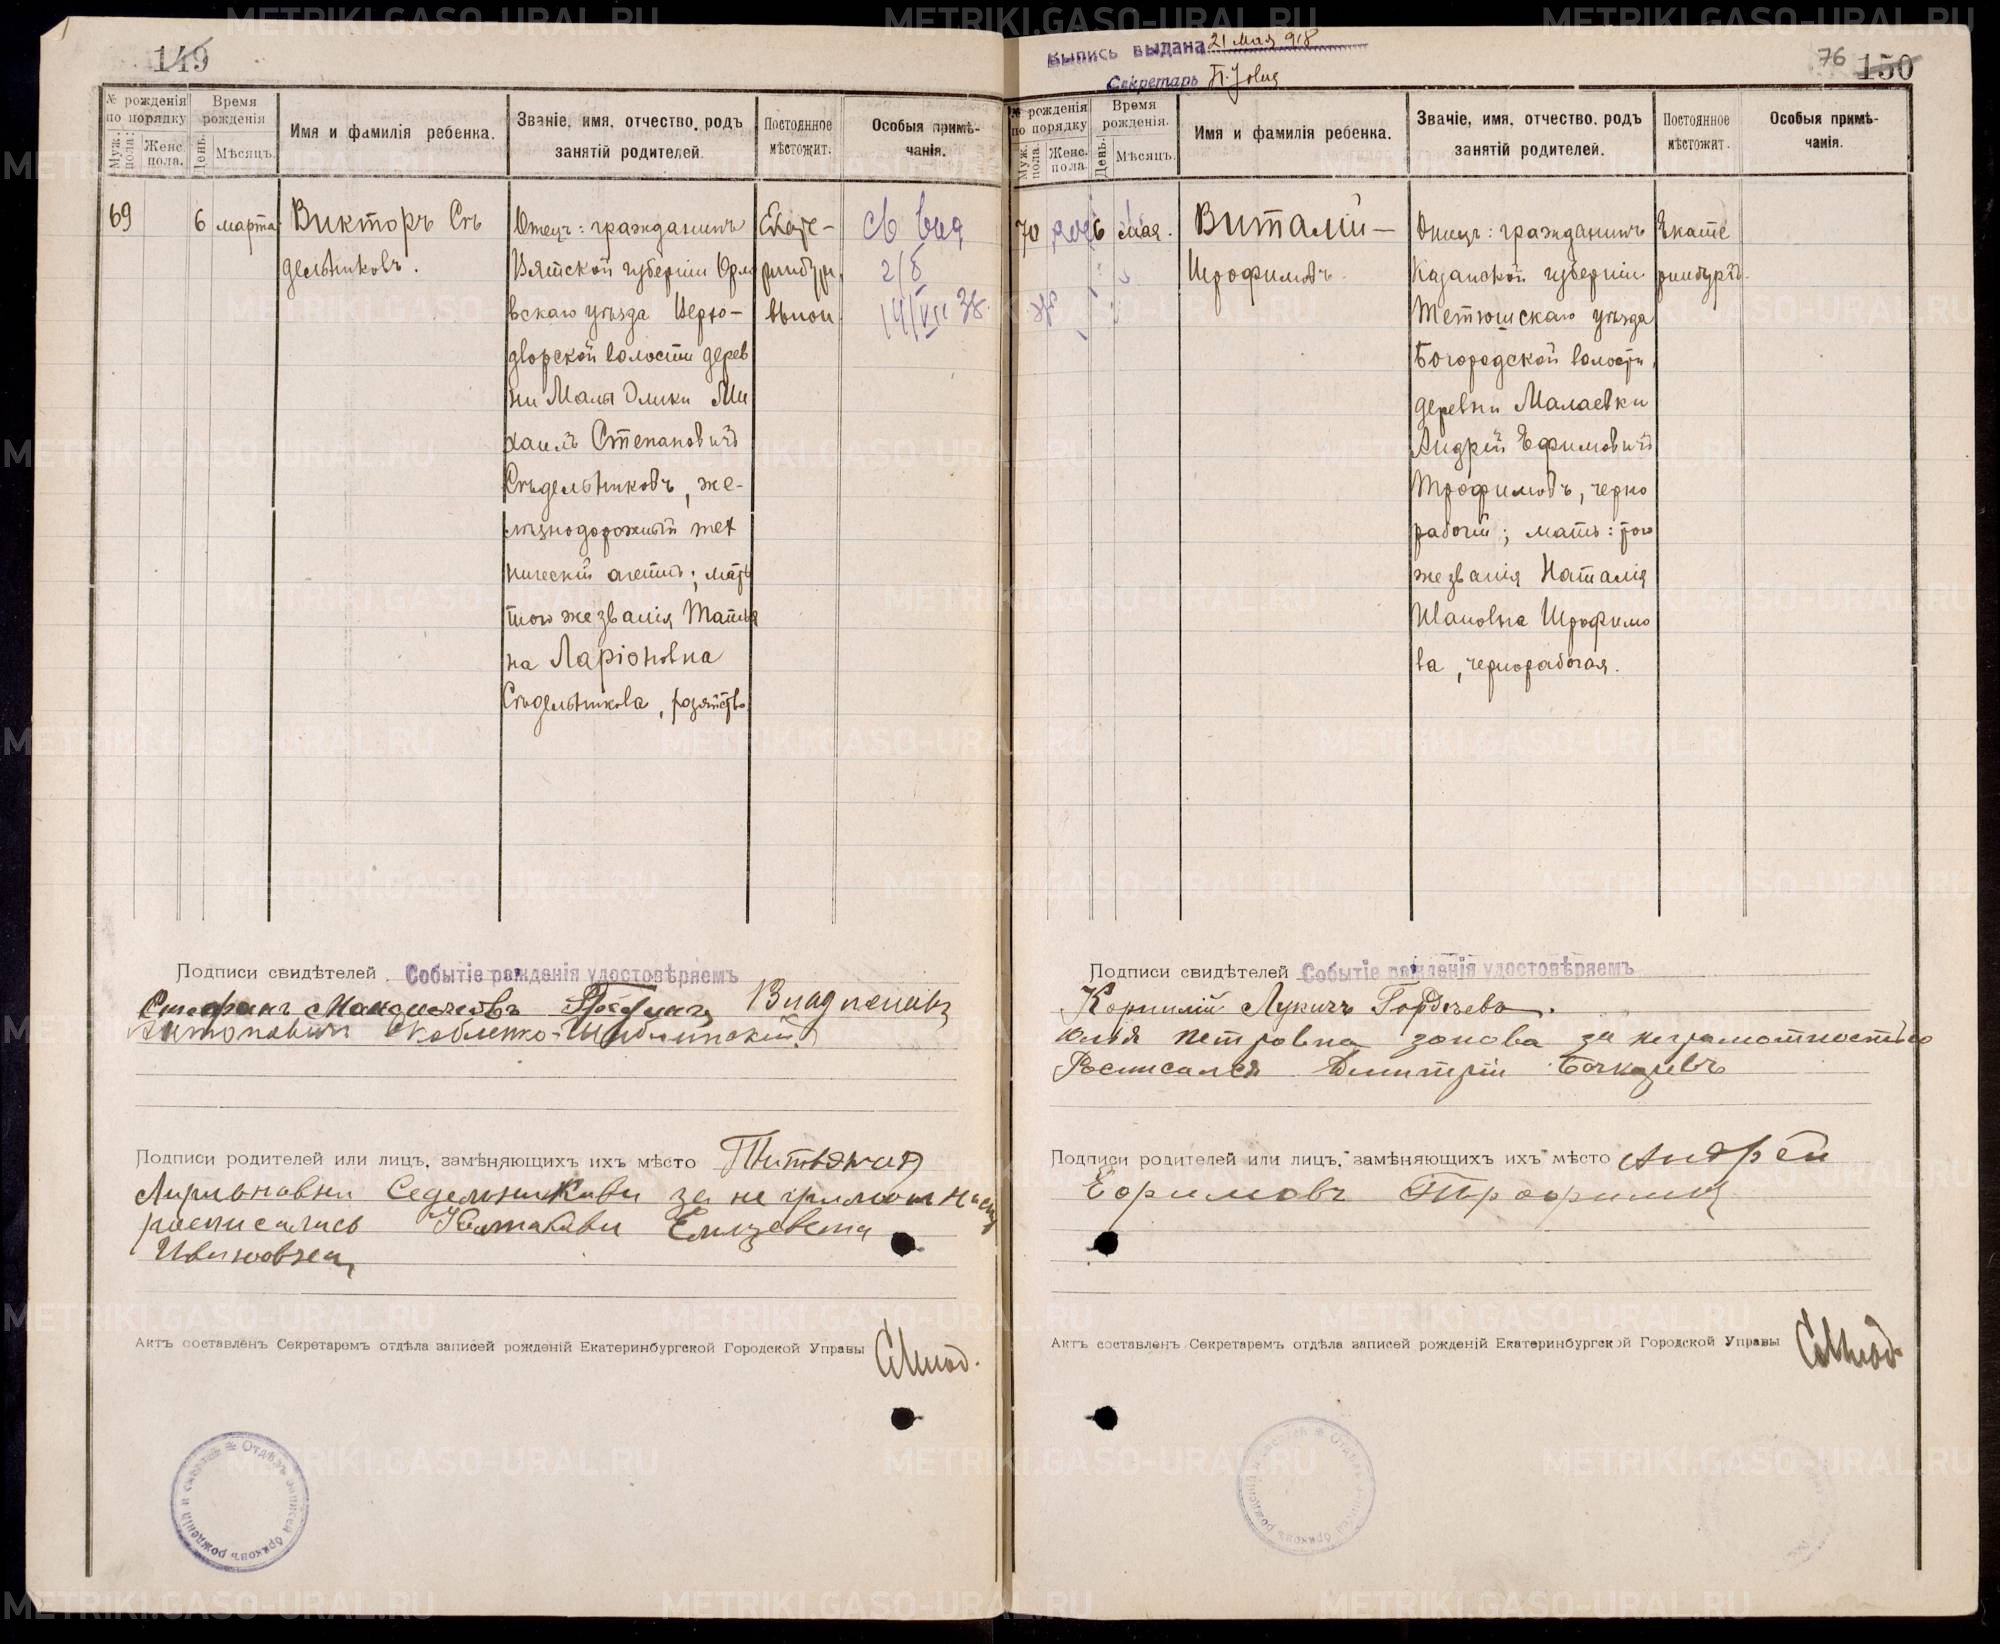 149
№ рожденія по порядку
Муж. пола.
Женс. пола.
Время рожденія
День.
Мѣсяцъ.
Имя и фамилія ребенка.
Званіе, имя, отчество, родъ
занятій родителей.
Постоянное
мѣстожит.
Особыя примѣ-
чанія.
69
6
марта
Викторъ Сѣ
дельниковъ.
Отецъ: гражданинъ
Вятской губерніи Орло
вскаго уѣзда Верхо-
дворской волости дерев
ни Малы Ми
хаилъ Степановичъ
Сѣдельниковъ, же-
лѣзнодорожный тех
ническій агентъ; мать
того же званія Татья
на Ларіоновна
Сѣдельникова, хозяйство
Екате-
ринбур
14/VII 38.
Подписи свидѣтелей
Событіе рожденія удостовѣряемъ
Антоновичъ
Подписи родителей или лицъ, замѣняющихъ ихъ мѣсто Татьяна
Ларивновны Седельникави за не грамотность
расписалась Елизевета
Ивановна
Актъ составленъ Секретаремъ отдѣла записей рожденій Екатеринбургской Городской Управы
Отдѣлъ записей браковъ рожденій и смертей
Выпись выдана 21 мая 918
Секретарь
76
150
№ рожденія по порядку
Муж. пола
Женс. пола.
Время рожденія.
День.
Мѣсяцъ.
Имя и фамилія ребенка.
Званіе, имя, отчество, родъ
занятій родителей.
Постоянное
мѣстожит.
Особыя примѣ-
чанія.
70
6
мая.
Виталій
Трофимовъ.
Отецъ: гражданинъ
Казанской губерніи
Тетюшскаго уѣзда
Богородской волости,
деревни Малаевки
Андрей Ефимовичъ
Трофимовъ, черно
рабочій; мать: того
же званія Наталія
Ивановна Трофимо
ва, чернорабочая.
Екате
ринбургъ.
Подписи свидѣтелей
Событіе рожденія удостовѣряемъ
Корнилій Лукичъ Гордеевъ.
Юлия Петровна зонова за неграмотностью
Росписался Дмитрій Бочкаревъ
Подписи родителей или лицъ, замѣняющихъ ихъ мѣсто Андрей
Ефимовъ Трофимов
Актъ составленъ Секретаремъ отдѣла записей рожденій Екатеринбургской Городской Управы
METRIKI.GASO-URAL.RU